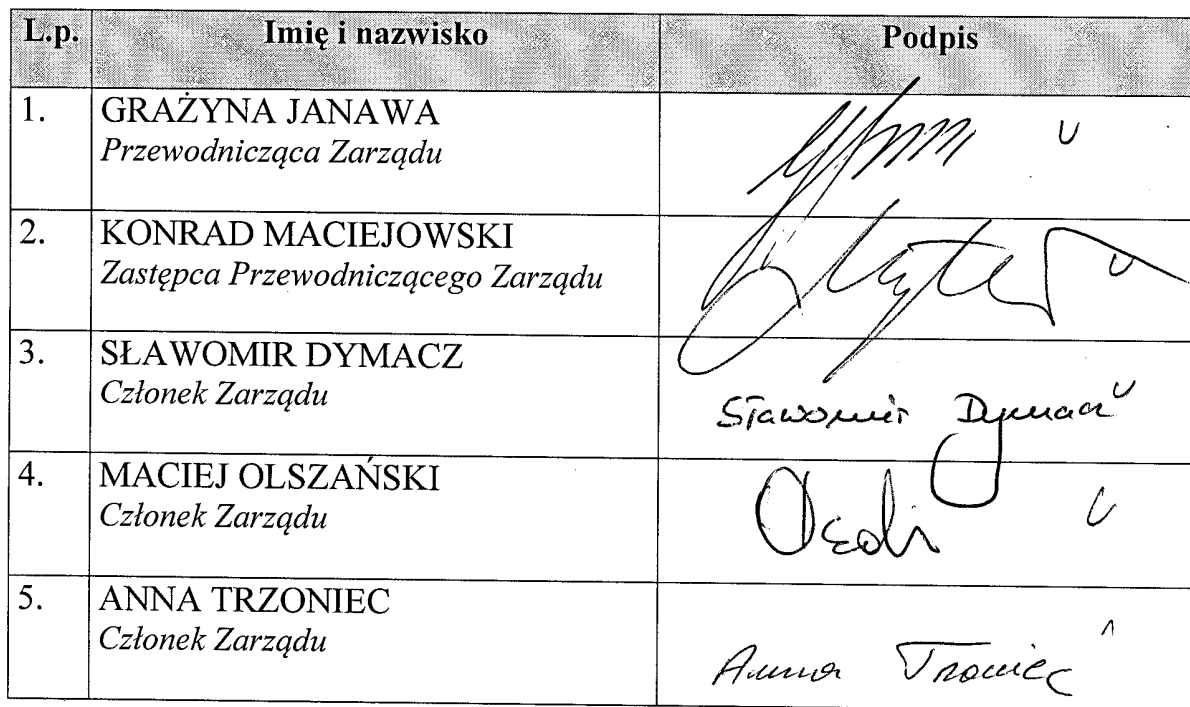 L.p. Imię i nazwisko Podpis
1. GRAŻYNA JANAWA
Przewodnicząca Zarządu
2. KONRAD MACIEJOWSKI
Zastępca Przewodniczącego Zarządu
3. SŁAWOMIR DYMACZ
Członek Zarządu
Sławomir Dymacz
4. MACIEJ OLSZAŃSKI
Członek Zarządu
5. ANNA TRZONIEC
Członek Zarządu
Anna Trzoniec